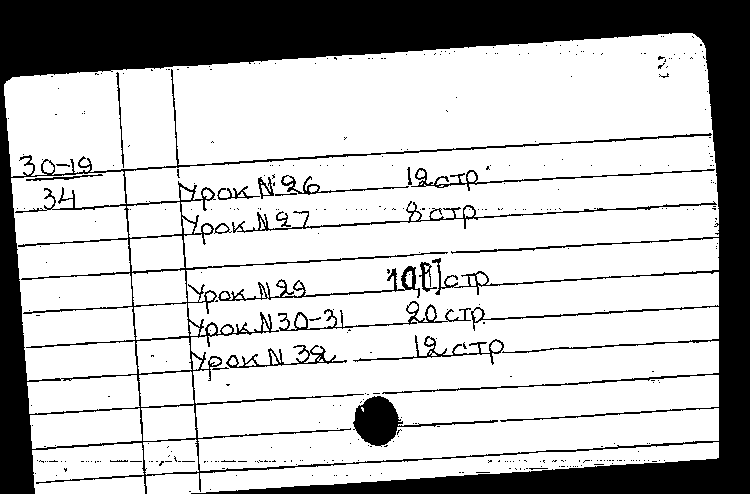 2
30-19
34
Урок N 26 12 стр.
Урок N 27 8 стр
Урок N 29 10,[1] стр
Урок N 30-31 20 стр
Урок N 32 12 стр